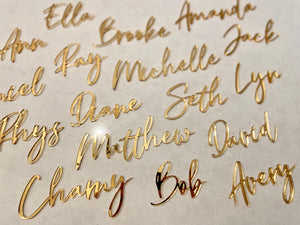 Ella Brooke Amanda
Ann Ray Michelle Jack
niel Diane Seth Lyn
Rhys Matthew David
Chamy Bob Avery